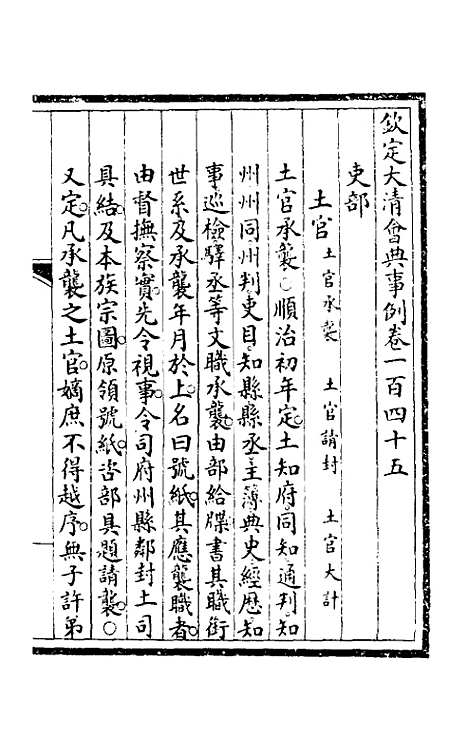 欽定大清會典事例卷一百四十五
吏部
土官 土官承襲 土官請封 土官大計
土官承襲○順治初年定。土知府。同知。通判。知
州。州同。州判。吏目。知縣。縣丞。主簿。典史。經歷。知
事。巡檢。驛丞等文職承襲。由部給牒。書其職銜
世系及承襲年月於上。名曰號紙。其應襲職者。
由督撫察實。先令視事。令司府州縣鄰封土司
具結。及本族宗圖。原領號紙。咨部具題請襲。○
又定。凡承襲之土官。嫡庶不得越序。無子許弟